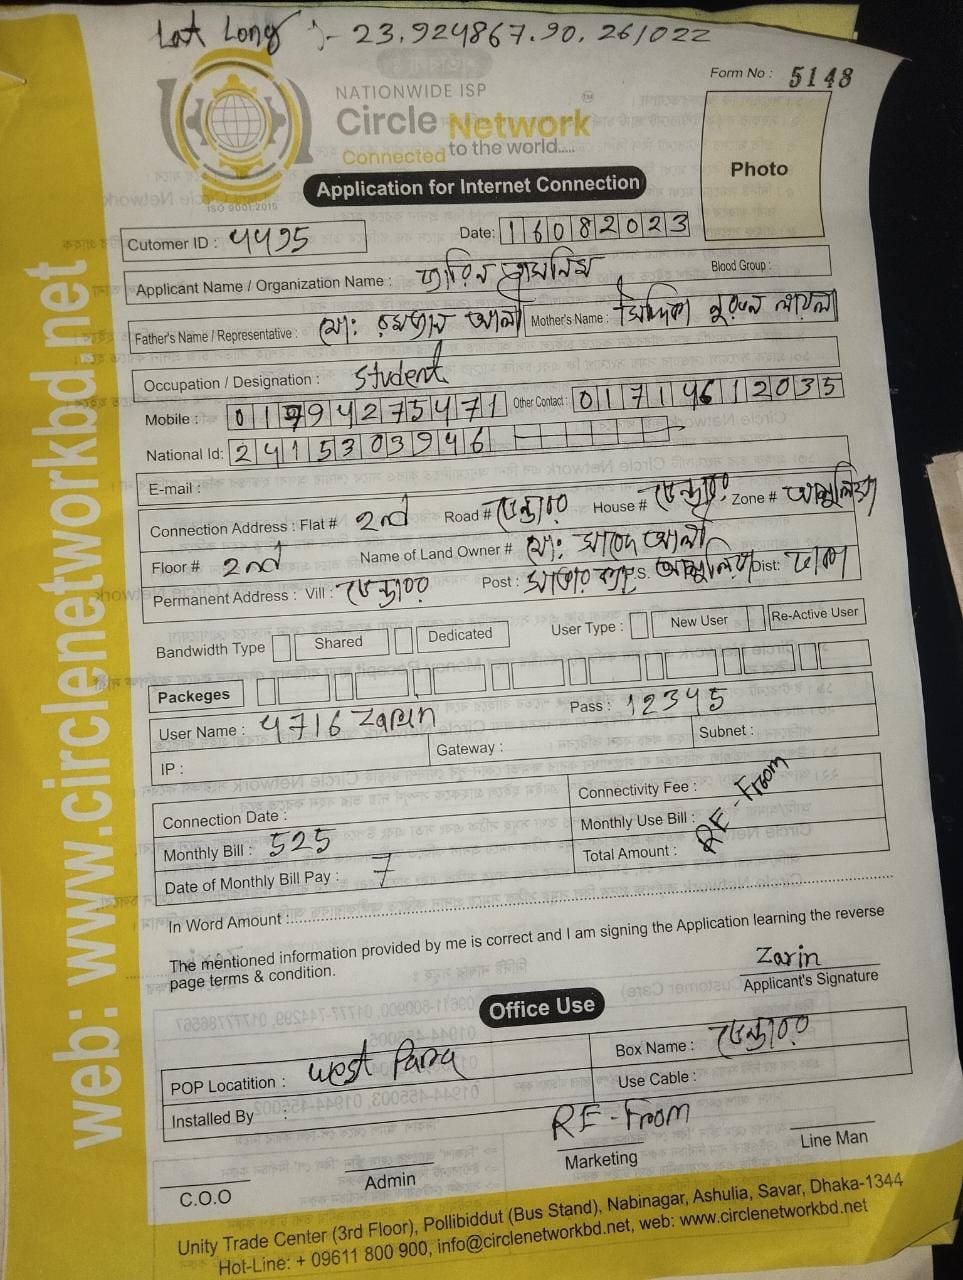 Lat Long :- 23.924867.90.261022
Form No : 5148
NATIONWIDE ISP
Circle Network
Connected to the world.....
ISO 9001:2015
Photo
Application for Internet Connection
Cutomer ID : 4495 Date: 16082023
Applicant Name / Organization Name : জারিন তাসনিম Blood Group :
Father's Name / Representative : মো: রমজান আলী Mother's Name :
Occupation / Designation : Student
Mobile : 01794275471 Other Contact : 01714612035
National Id: 2415303946
E-mail :
Connection Address : Flat # 2nd Road # House # Zone # আশুলিয়া
Floor # 2nd Name of Land Owner # মো:
Permanent Address : Vill : Post : P.S. আশুলিয়া Dist: ঢাকা
Bandwidth Type Shared Dedicated User Type : New User Re-Active User
Packeges
User Name : 4716 Zarin Pass : 12345
IP : Gateway : Subnet :
Connection Date : Connectivity Fee :
Monthly Bill : 525 Monthly Use Bill : RE-From
Date of Monthly Bill Pay : 7 Total Amount :
In Word Amount :
The mentioned information provided by me is correct and I am signing the Application learning the reverse
page terms & condition.
Zarin
Applicant's Signature
Office Use
POP Locatition : West Para Box Name :
Installed By : Use Cable :
RE-From
C.O.O Admin Marketing Line Man
Unity Trade Center (3rd Floor), Pollibiddut (Bus Stand), Nabinagar, Ashulia, Savar, Dhaka-1344
Hot-Line: + 09611 800 900, info@circlenetworkbd.net, web: www.circlenetworkbd.net
web: www.circlenetworkbd.net